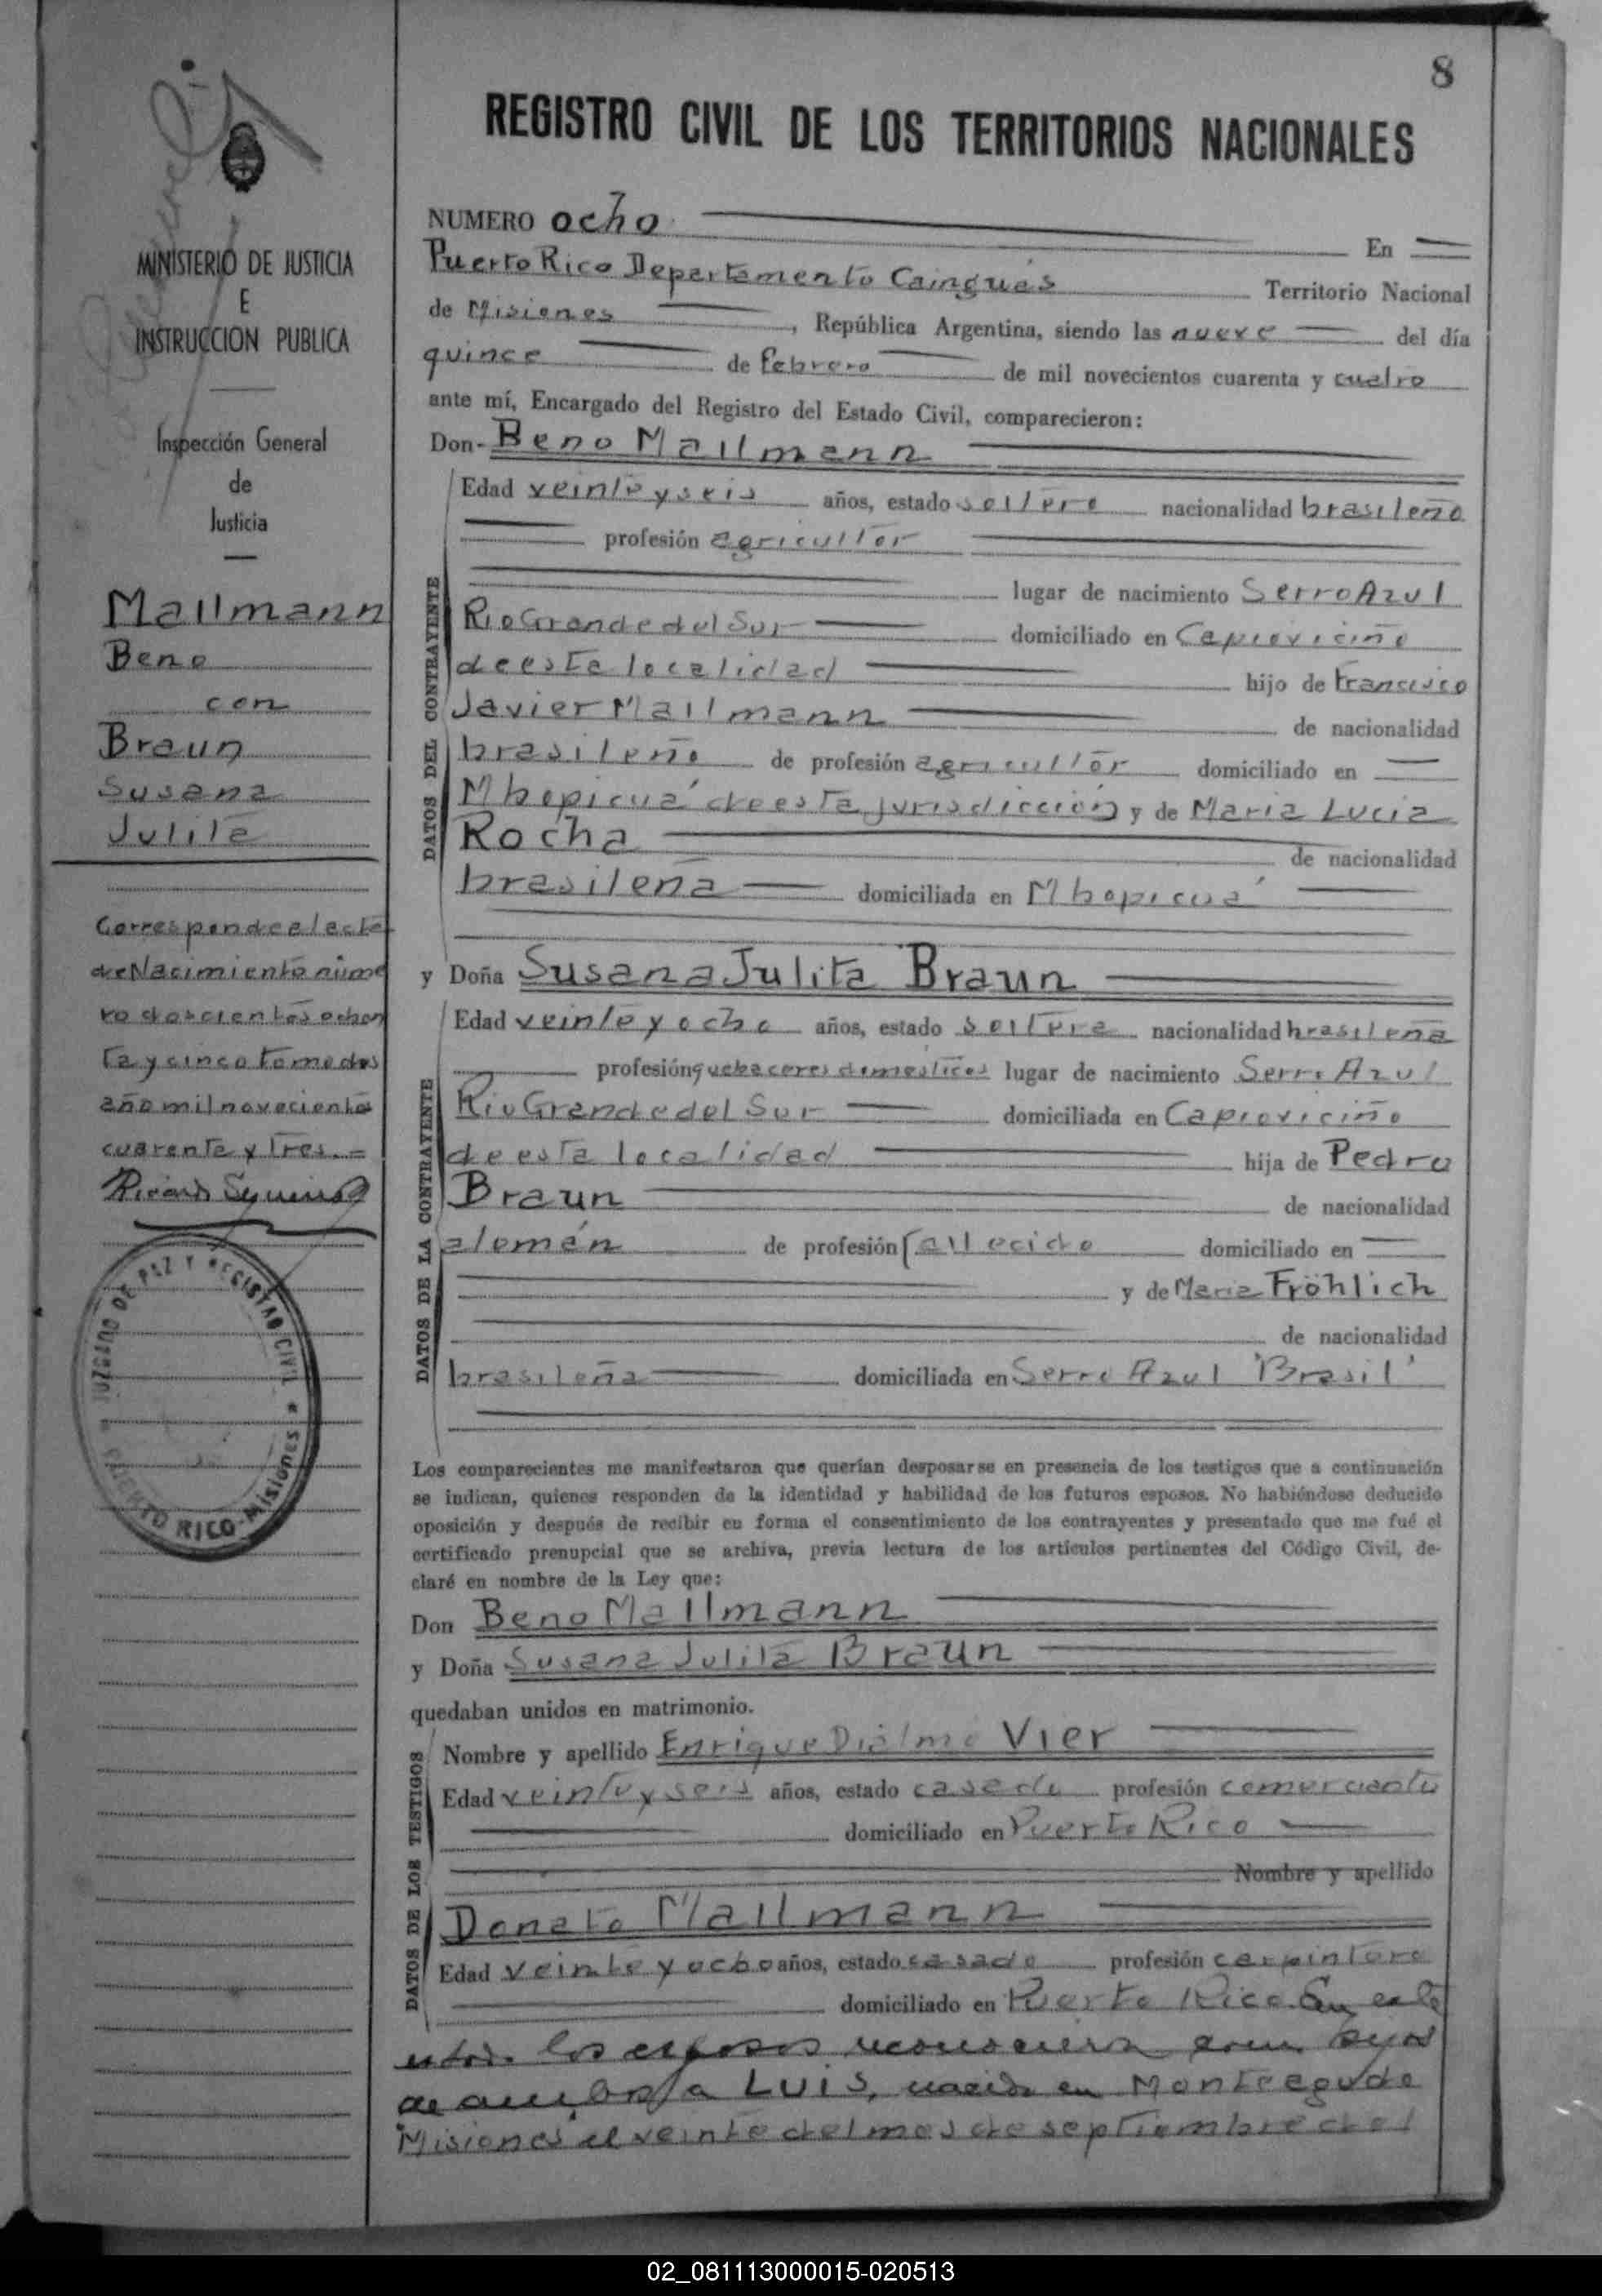 8
REGISTRO CIVIL DE LOS TERRITORIOS NACIONALES
MINISTERIO DE JUSTICIA
E
INSTRUCCION PUBLICA
Inspección General
de
Justicia
Mallmann
Beno
con
Braun
Susana
Julita
Corresponde al acta
de Nacimiento núme
ro doscientos ochen
ta y cinco tomo dos
año mil novecientos
cuarenta y tres.=
JUZGADO DE PAZ Y REGISTRO CIVIL
PUERTO RICO - Misiones
NUMERO ocho En
Puerto Rico Departamento Cainguás Territorio Nacional
de Misiones, República Argentina, siendo las nueve del día
quince de febrero de mil novecientos cuarenta y cuatro
ante mí, Encargado del Registro del Estado Civil, comparecieron:
Don- Beno Mallmann
DATOS DEL CONTRAYENTE
Edad veinte y seis años, estado soltero nacionalidad brasileño
profesión agricultor
lugar de nacimiento Serro Azul
Rio Grande del Sur domiciliado en Capioviciño
de esta localidad hijo de Francisco
Javier Mallmann de nacionalidad
brasileño de profesión agricultor domiciliado en
Mbopicuá de esta jurisdicción y de Maria Lucia
Rocha de nacionalidad
brasileña domiciliada en Mbopicuá
y Doña Susana Julita Braun
DATOS DE LA CONTRAYENTE
Edad veinte y ocho años, estado soltera nacionalidad brasileña
profesión quehaceres domesticos lugar de nacimiento Serro Azul
Rio Grande del Sur domiciliada en Capioviciño
de esta localidad hija de Pedro
Braun de nacionalidad
alemán de profesión fallecido domiciliado en
y de Maria Fröhlich
de nacionalidad
brasileña domiciliada en Serro Azul 'Brasil'
Los comparecientes me manifestaron que querían desposarse en presencia de los testigos que a continuación
se indican, quienes responden de la identidad y habilidad de los futuros esposos. No habiéndose deducido
oposición y después de recibir en forma el consentimiento de los contrayentes y presentado que me fué el
certificado prenupcial que se archiva, previa lectura de los artículos pertinentes del Código Civil, de-
claré en nombre de la Ley que:
Don Beno Mallmann
y Doña Susana Julita Braun
quedaban unidos en matrimonio.
DATOS DE LOS TESTIGOS
Nombre y apellido Enrique Dialmo Vier
Edad veinte y seis años, estado casado profesión comerciante
domiciliado en Puerto Rico
Nombre y apellido
Donato Mallmann
Edad veinte y ocho años, estado casado profesión carpintero
domiciliado en Puerto Rico. En este
los esposos reconocieron como suyos
de ambos a LUIS, nacido en Monteagudo
Misiones el veinte del mes de septiembre del
02_081113000015-020513